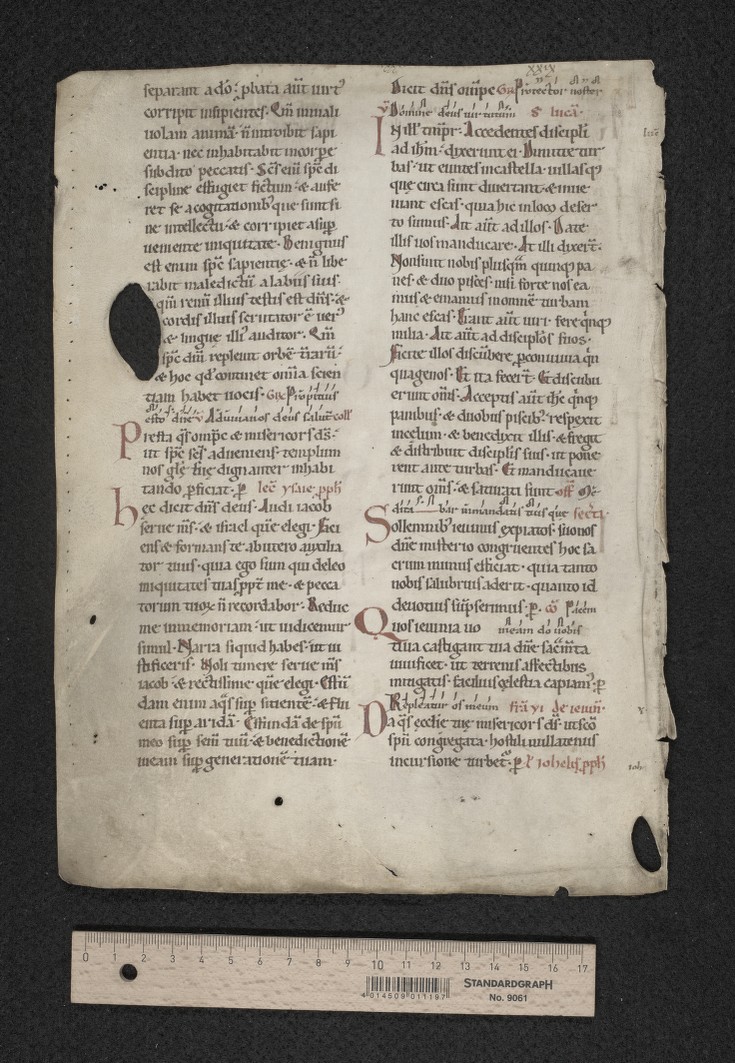 xxix
separant a dō· ꝓbata aūt uirtꝰ
corripit insipientes· Qm̄ in mali
uolam animā· ñ introibit sapi
entia· nec inhabitabit in corpe
subdito peccatis· Sc̄s eni sp̄c di
scipline effugiet fictum· & aufe
ret se a cogitationibꝰ que sunt si
ne intellectu· & corripiet a suꝑ
ueniente iniquitate· Benignus
est enim sp̄c sapientie· & ñ libe
rabit maledictū a labiis suis·
qm̄ renū illius testis est dn̄s· &
cordis illius scrutator ē uerꝰ
& lingue illiꝰ auditor· Qm̄
sp̄c dn̄i repleuit orbē t̄rarū·
& hoc qd̓ continet om̄ia scien
tiam habet uocis· Gr̄ Propitius
esto dn̄e ꝟ Adiuua nos deus salut̄ coll̄
Presta q̄s om̄pc & misericors ds̄·
ut sp̄c sc̄s adueniens· templum
nos glē sue dignanter inhabi
tando ꝑficiat· ꝑ lec̄ ysaie ꝓph̄
hec dicit dn̄s deus· Audi iacob
serue m̄s· & isrl̄ que elegi· Faci
ens & formans te ab utero auxilia
tor tuus· quia ego sum qui deleo
iniquitates tuas ꝓpt̄ me· & pecca
torum tuoꝝ ñ recordabor· Reduc
me in memoriam· ut iudicemur
simul· Narra siquid habes· ut iu
stificeris· Noli timere serue m̄s
iacob· & rectissime quē elegi· Effū
dam enim aq̄s suꝑ sitientē· & flu
enta suꝑ aridā· Effundā de spū
meo suꝑ semen tuū· & benedictionē
meam suꝑ generationē tuam·
Dicit dn̄s om̄pc Gr̄ Protector noster
ꝟ Domine deus uirtutum S̄ lucā·
IN ill̄ tmp̄r· Accedentes discipli
ad ihm̄· dixerunt ei· Dimitte tur
bas· ut euntes in castella· uillasqꝫ
que circa sunt diuertant· & inue
niant escas· quia hic in loco deser
to sumus· Ait aūt ad illos· Date
illis uos manducare· At illi dixert̄·
Non sunt nobis plus qm̄ quinqꝫ pa
nes· & duo pisces· nisi forte nos ea
mus & emamus in omnē turbam
hanc escas· Erant aūt uiri· fere q̄nqꝫ
milia· Ait aūt ad discipl̄os suos·
Facite illos discūbere ꝑ conuiuia q̄n
quagenos· Et ita fecert̄· Et discubu
erunt om̄s· Acceptis aūt ihc̄ q̄nqꝫ
panibus· & duobus piscibꝰ· respexit
in celum· & benedixit illis· & fregit
& distribuit discipl̄is suis· ut pone
rent ante turbas· Et manducaue
runt om̄s· & saturati sunt off̄ Me
dita bar in mandatis tuis que secr̄ta
Sollemnibꝰ ieiuniis expiatos· suo nos
dn̄e misterio congruentes hoc sa
crum munus efficiat· quia tanto
nobis salubrius aderit· quanto id
deuotius sūpserimus· ꝑ· cō Pacem
Quos ieiunia uo meam do uobis
tiua castigant tua dn̄e sac̄mta
uiuificet· ut terrenis affectibus
mitigatis· facilius celestia capiamꝰ ꝑ
Repleatur os meum fr̄a vi de ieiun̄·
Da q̄s ecc̄lie tue misericors ds̄· ut sc̄o
spū congregata· hostili nullatenus
incursione turbet̄· ꝑ l̄ iohelis ꝓph̄
luc̄
ioh